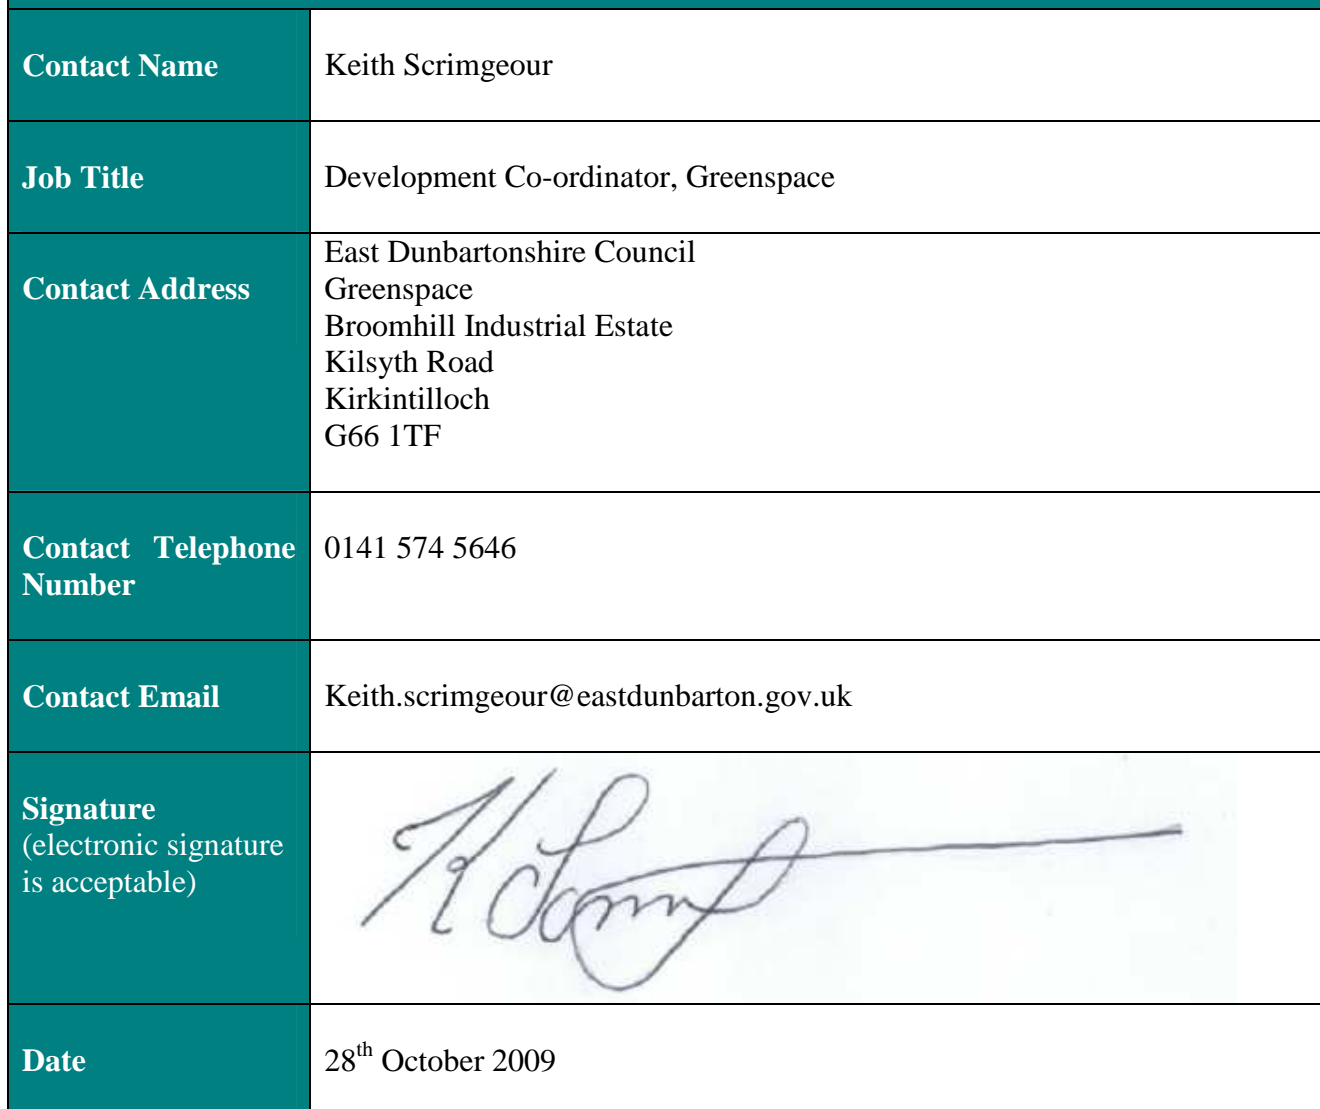 Contact Name
Keith Scrimgeour
Job Title
Development Co-ordinator, Greenspace
Contact Address
East Dunbartonshire Council
Greenspace
Broomhill Industrial Estate
Kilsyth Road
Kirkintilloch
G66 1TF
Contact Telephone
Number
0141 574 5646
Contact Email
Keith.scrimgeour@eastdunbarton.gov.uk
Signature
(electronic signature
is acceptable)
Date
28th October 2009